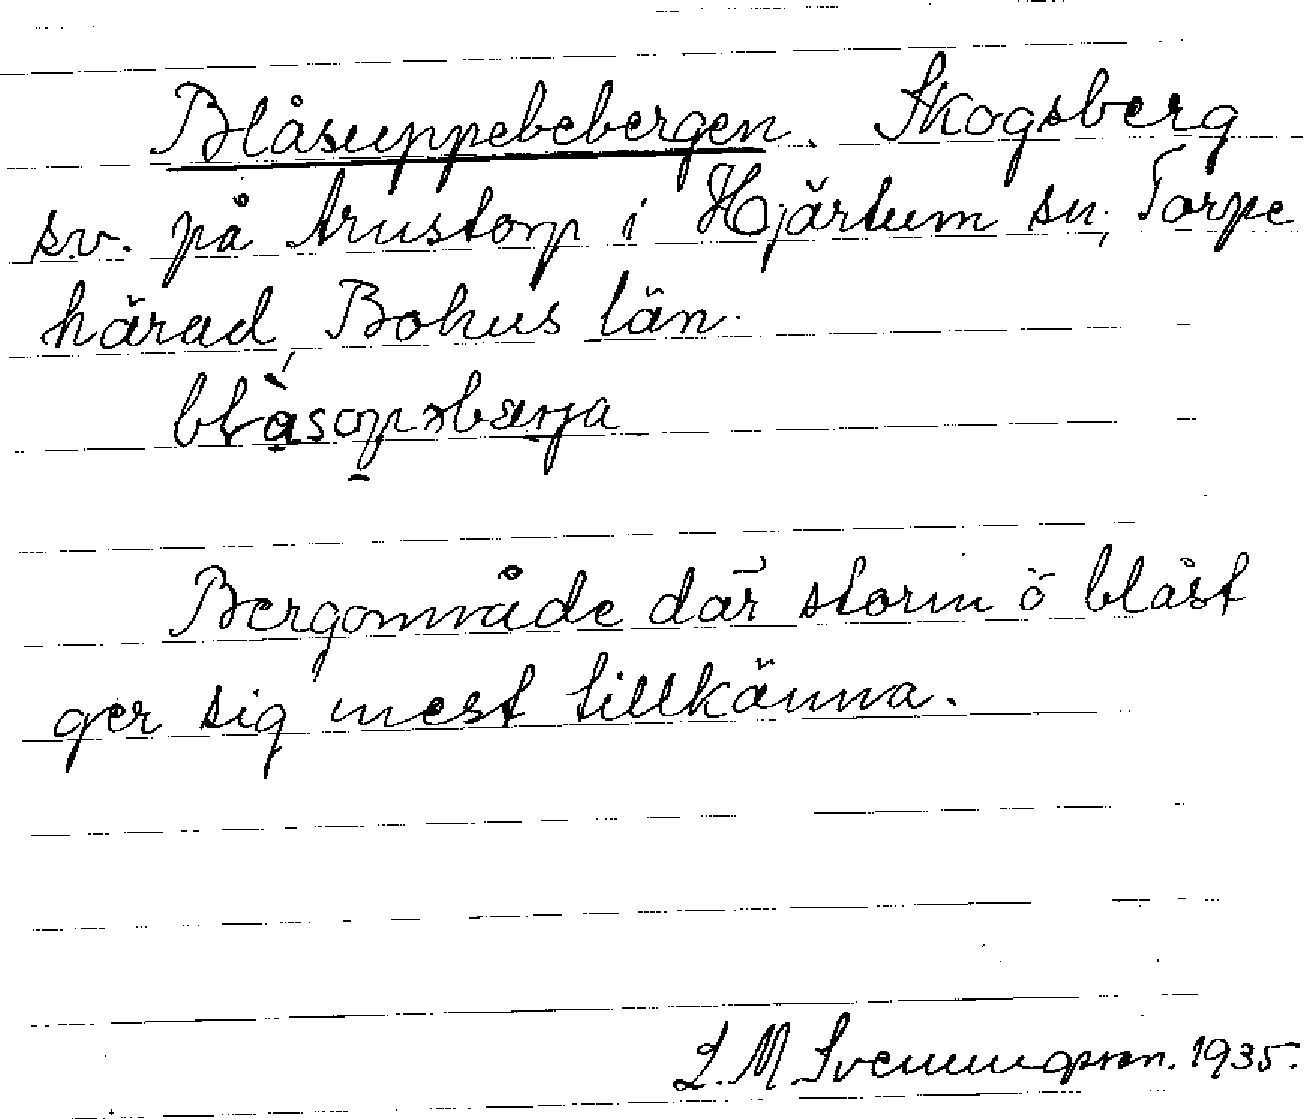 Blåsuppebebergen. Skogsberg
s.v. på Krustorp i Hjärtum sn, Torpe
härad, Bohus län.
blåsopəbærja
Bergområde där storm ö blåst
ger sig mest tillkänna.
L. M. Svenningsson. 1935.